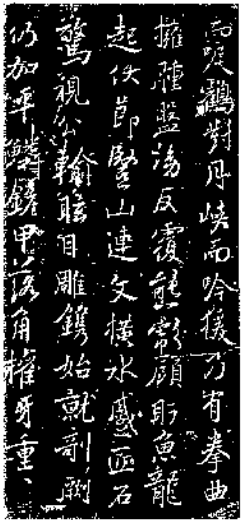 而唳鶴對月峽而吟猨乃有拳曲
擁腫盤坳反覆熊彪顧盼魚龍
起伏節豎山連文橫水蹙匠石
驚視公輸眩目雕鐫始就剞劂
仍加平鱗鏟甲落角摧牙重〻